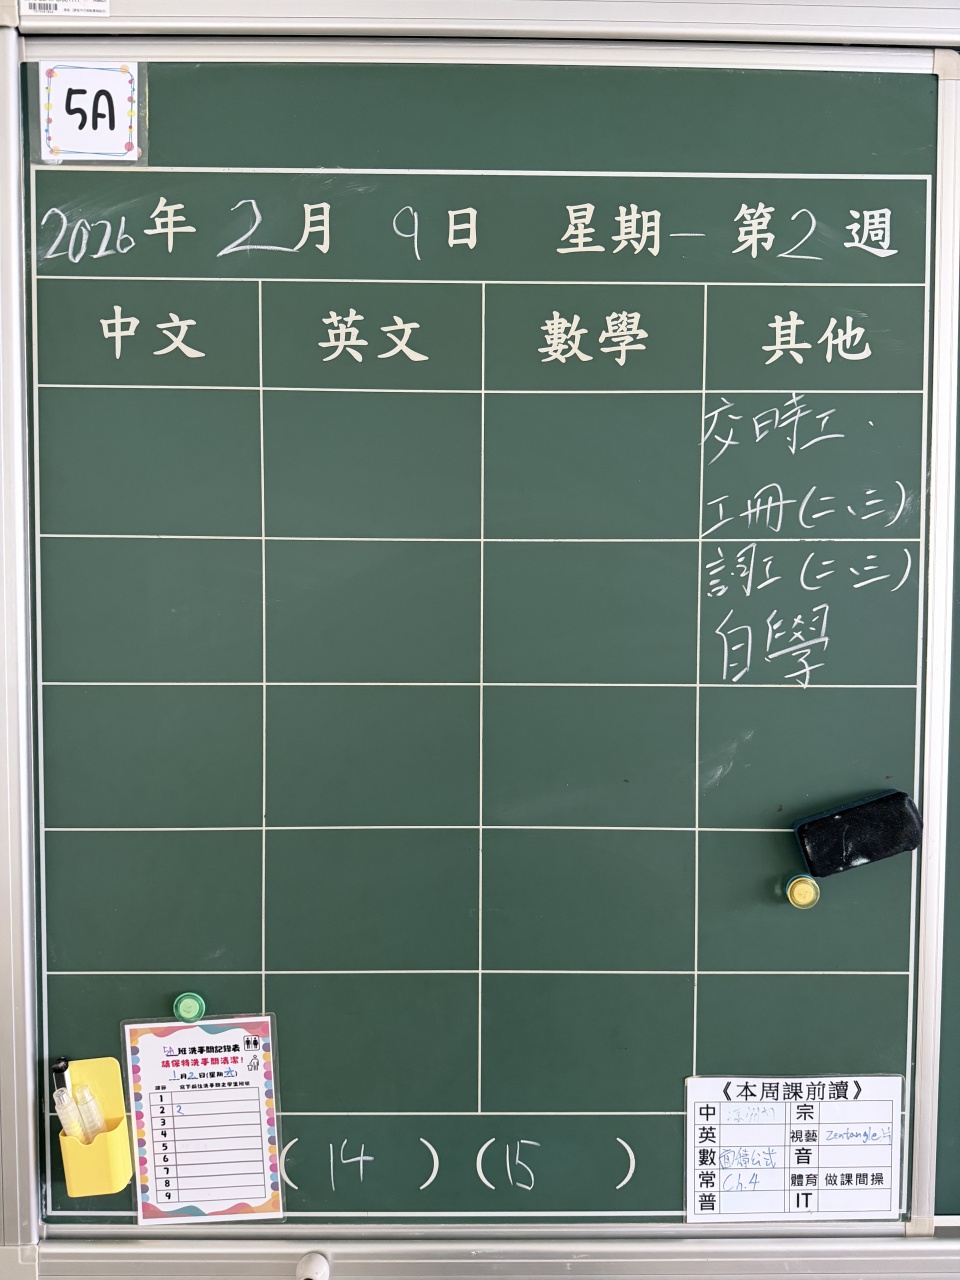 5A
2026年 2月 9日 星期一 第2週
中文 英文 數學 其他
交時工.
工冊(二、三)
詞工(二、三)
自學
5A班洗手間記錄表
請保持洗手間清潔!
1月2日(星期
課節 寫下前往洗手間之學生班號
1
2 2
3
4
5
6
7
8
9
(14) (15)
《本周課前讀》
中 宗
英 視藝 Zentangle片
數 面積公式 音
常 Ch.4 體育 做課間操
普 IT